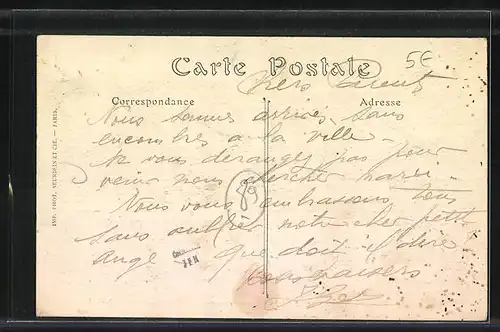 5€
Carte Postale
Chers Parents
Correspondance
Adresse
Nous sommes arrivés sans
encombres a la ville
ne vous dérangez pas pour
venir nous chercher
Nous vous embrassons tous
sans oublier notre cher petit
ange que doit-il dire
Bons baisers
IMP. PHOT. NEURDEIN ET CIE. — PARIS.